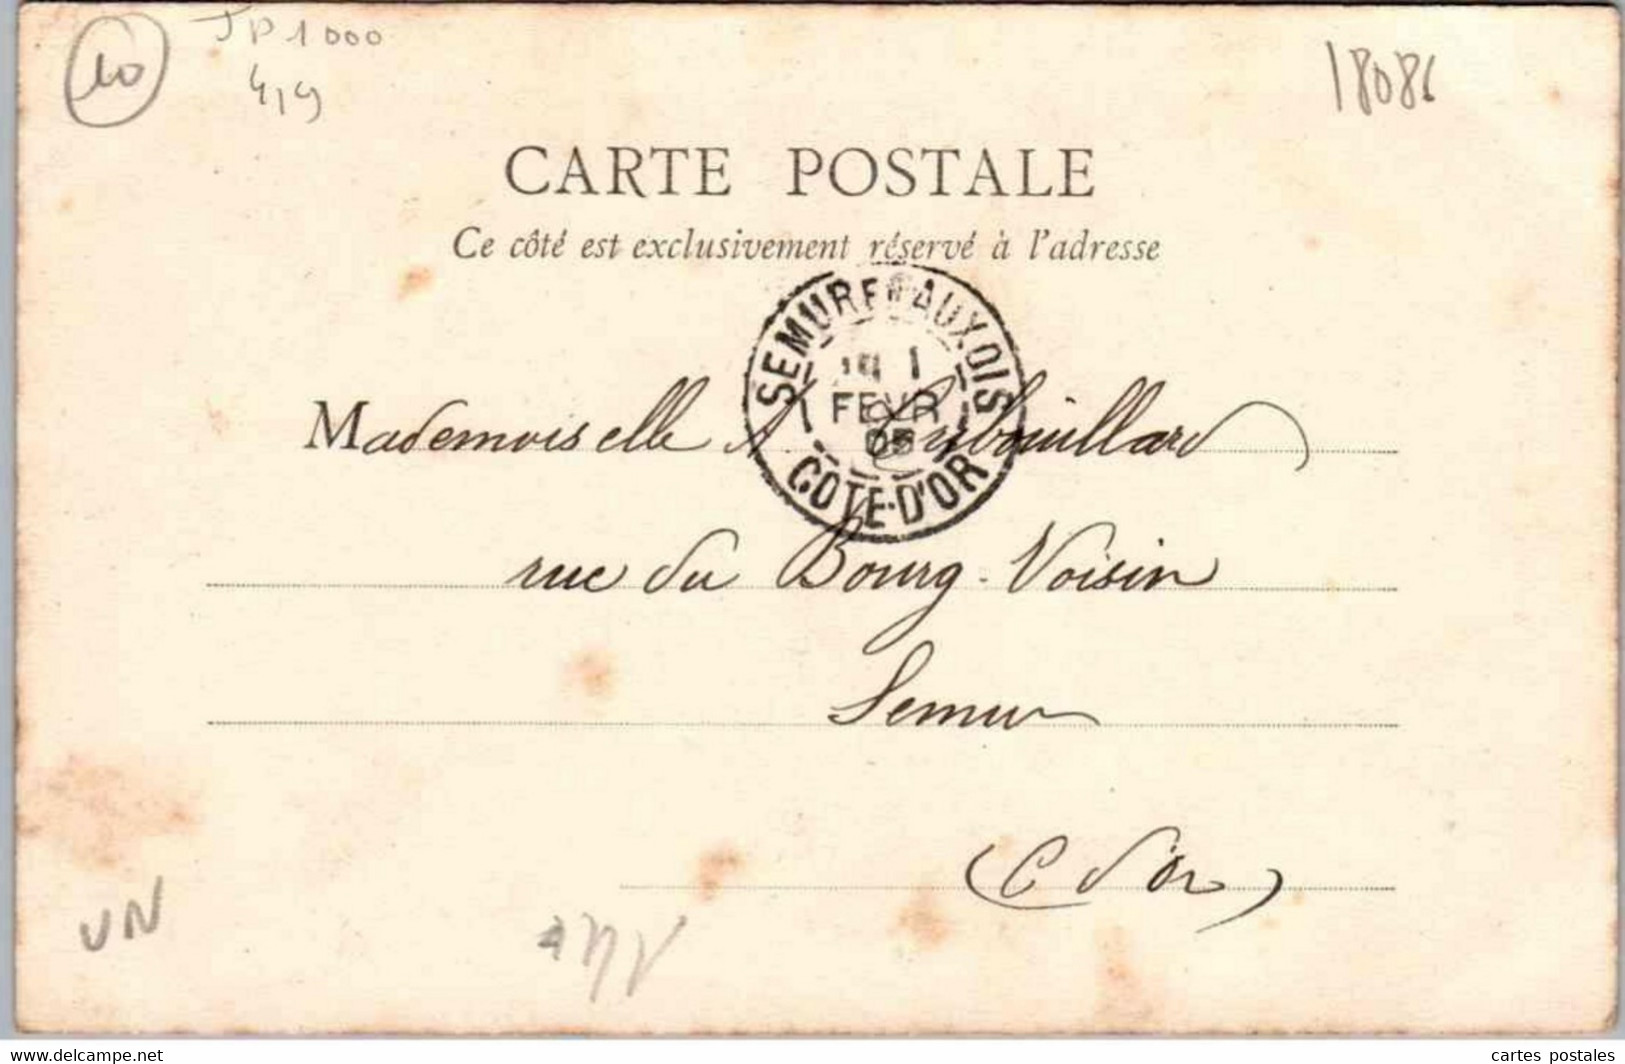 10
JP1000
419
18086
CARTE POSTALE
Ce côté est exclusivement réservé à l'adresse
SEMUR EN AUXOIS
1
FEVR
05
COTE-D'OR
Mademoiselle A.
rue du Bourg-Voisin
Semur
(C d'or)
VN
www.delcampe.net
cartes_postales